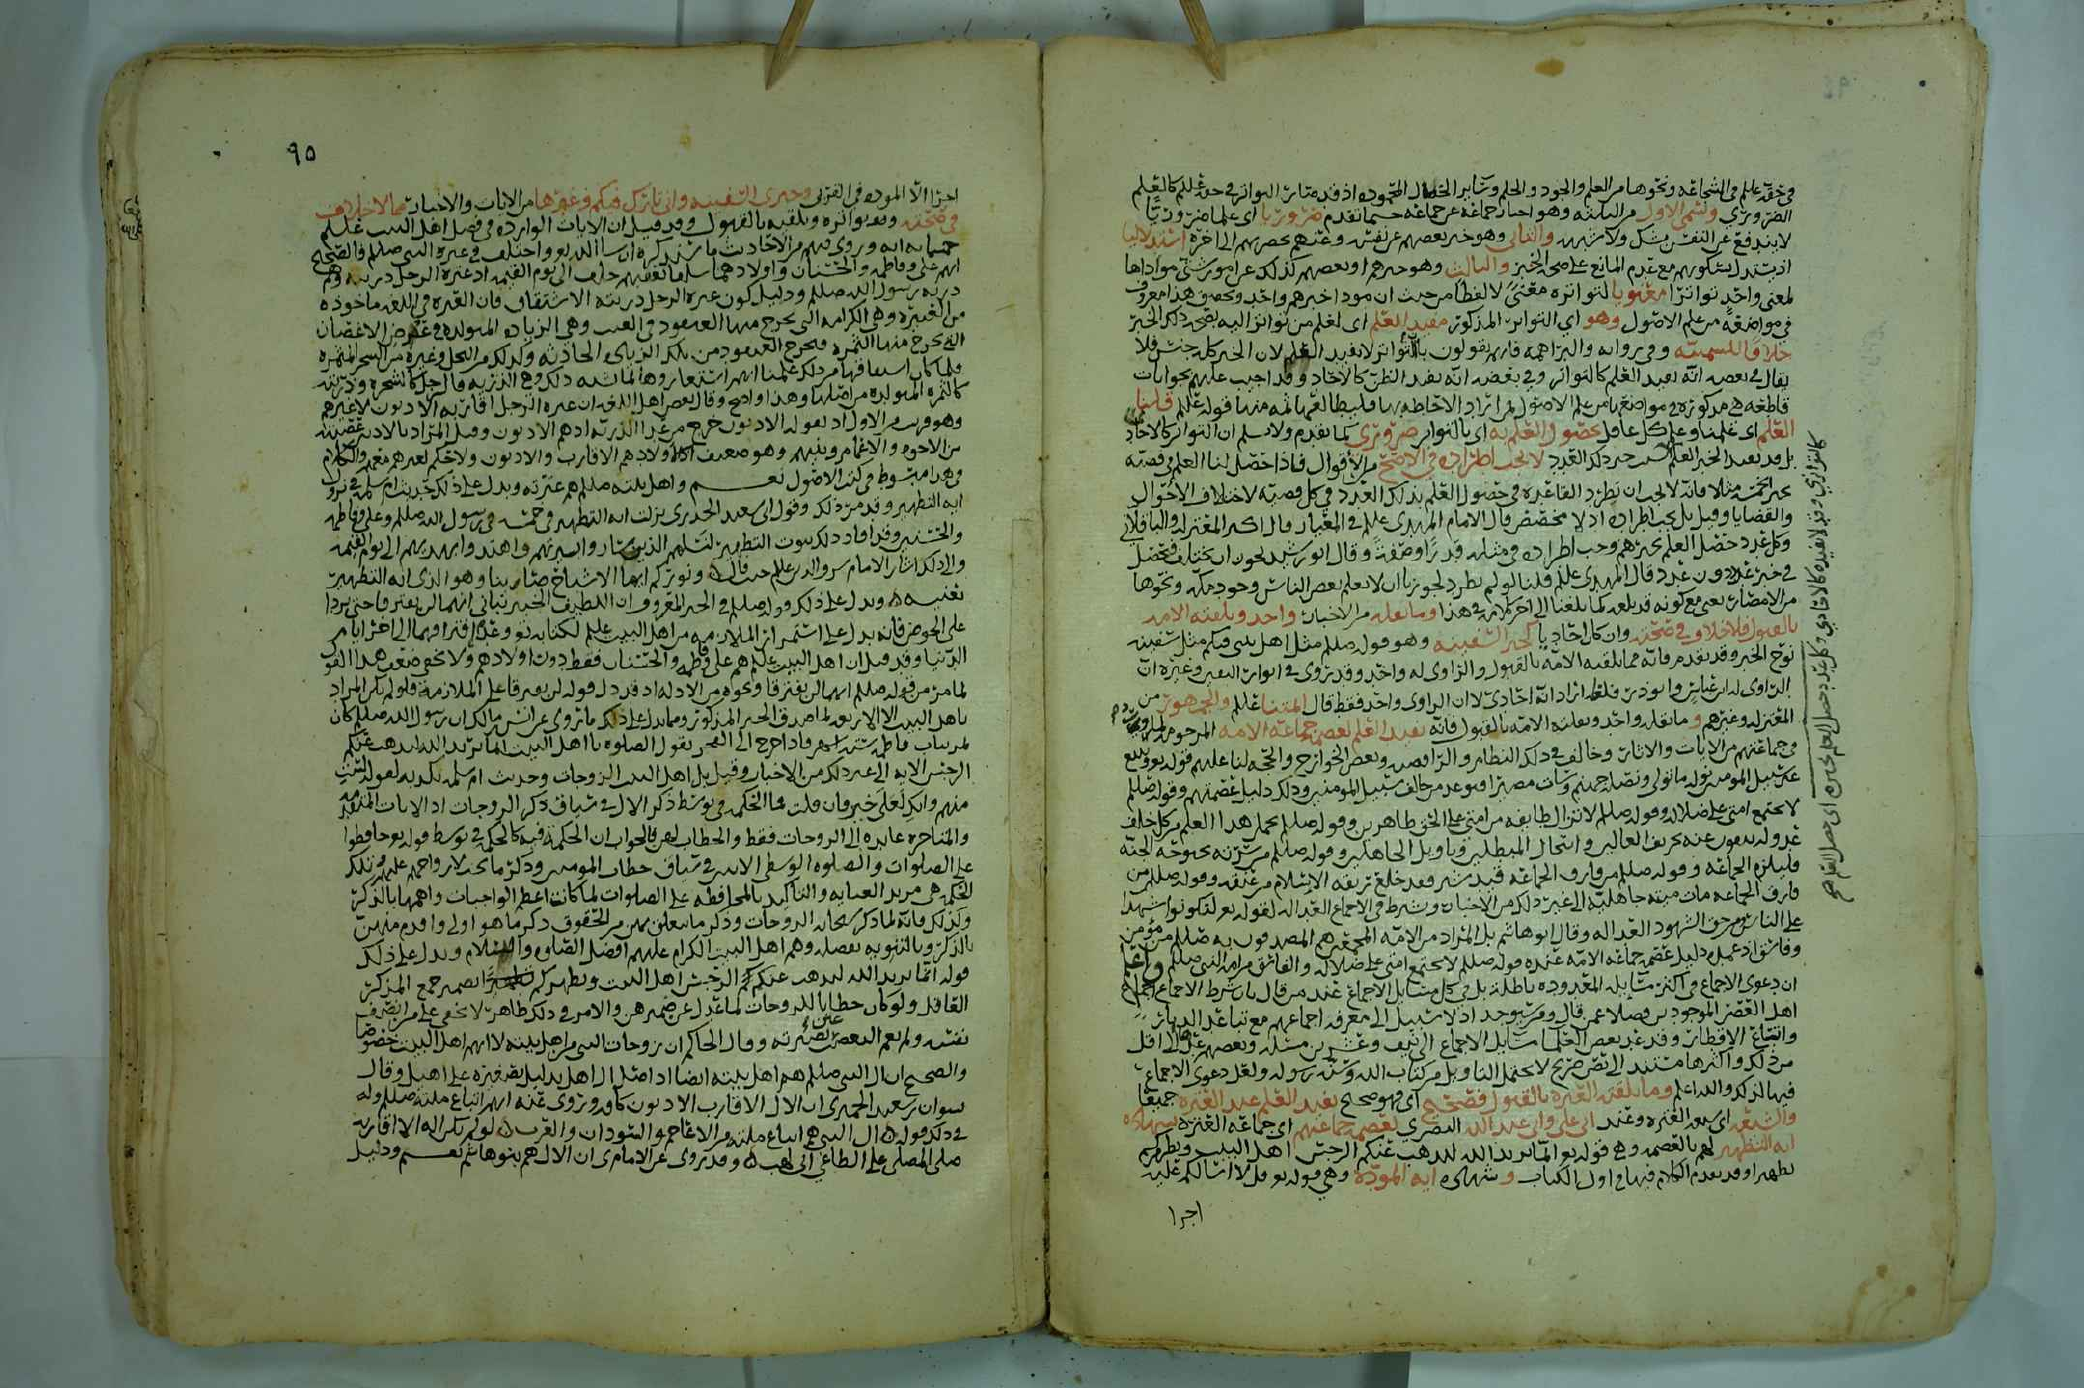 وحقه عللم في الشجاعه ونحوها من العلم والجود والحلم وسائر الخصال المحموده اذ قد صار التواتر في حقه عللم كالعلم
الضروري ويسمى الاول من الثلثه وهو اخبار جماعه عن جماعه حسبما تقدم ضروريا اي علما ضروريا
لا يندفع عن النفس بشك ولا شبهه والثاني وهو خبر بعضهم عن نفس وغيرهم بحضرتهم الى اخره استدلاليا
اذ يستدل بسكوتهم مع عدم المانع على صحه الخبر والثالث وهو خبرهم او بعضهم كذلك عن امور شتى موداها
لمعنى واحد تواترا معنويا لتواتره معنى لا لفظا من حيث ان مودا خبرهم واحد وتحصيل هذا معروف
في مواضعه من علم الاصول وهو اي التواتر المذكور مفيد العلم اي لعلم من تواتر اليه بصحه ذلك الخبر
خلافا للسمنيه وفي روايه والبراهمه فانهم يقولون بان التواتر لا يفيد العلم لان الخبر كل جنس فلا
يقال في بعضه انه يفيد العلم كالتواتر وفي بعضه انه يفيد الظن كالاحاد وقد اجيب عليهم بجوابات
قاطعه هي مذكوره في مواضعها من علم الاصول لمن اراد الاحاطه بها فليطالعها ثمه منها قوله عللم قلنا
العلم اي علمنا وعلم كل عاقل بحصول العلم به اي بالتواتر ضروري كما تقدم ولا نسلم ان التواتر كالاحاد
بل قد يفيد الخبر العلم ذلك العدد لا يجب اطراده في الاصح من الاقوال فاذا حصل لنا العلم في قضيه
بخبر الخمسه مثلا فانه لا يجب ان تطرد القاعده في حصول العلم بذلك العدد في كل قضيه لاختلاف الاحوال
والقضايا وقيل بل يجب اطراده اذ لا مخصص قال الامام المهدي عللم في المعيار قال اكثر المعتزله والباقلاني
وكل عدد حصل العلم بخبرهم وجب اطراده في مثله قدرا وصفة وقال ابو رشيد يجوز ان يختلف فيحصل
في خبر عدد دون عدد قال المهدي عللم قلنا لو لم يطرد لجوزنا ان لا يعلم بعض الناس وجود مكه ونحوها
من الامصار يعني مع كونه قد بلغه كما بلغنا الى اخر كلامه في هذا وما نقله من الاخبار واحد وتلقته الامه
بالقبول فلا خلاف في صحته وان كان احاديا كخبر السفينه وهو قوله صللم مثل اهل بيتي فيكم مثل سفينه
نوح الخبر وقد تقدم فانه مما تلقته الامه بالقبول والراوي له واحد وقد روي في انوار اليقين وغيره ان
الراوي له ابن عباس وابو ذر فلعله اراد انه احادي لا ان الراوي واحد فقط قال ائمتنا عللم والجمهور من
المعتزله وغيرهم وما نقله واحد وتلقته الامه بالقبول فانه يفيد العلم لعصمه جماعه الامه المرحومه
في جماعتهم من الايات والاثار وخالف في ذلك النظام والرافضه وبعض الخوارج والحجه لنا عليهم قوله تع ويتبع
غير سبيل المومنين نوله ما تولى ونصله جهنم وساءت مصيرا فتوعد من خالف سبيل المومنين وذلك دليل عصمتهم وقوله صللم
لا تجتمع امتي على ضلاله وقوله صللم لا تزال طايفه من امتي على الحق ظاهرين وقوله صللم يحمل هذا العلم من كل خلف
عدوله ينفون عنه تحريف الغالين وانتحال المبطلين وتاويل الجاهلين وقوله صللم من سره بحبوحه الجنه
فليلزم الجماعه وقوله صللم من فارق الجماعه قيد شبر فقد خلع ربقه الاسلام من عنقه وقوله صللم من
فارق الجماعه مات ميته جاهليه الى غير ذلك من الاخبار وشرط في الاجماع العداله لقوله تع لتكونوا شهدا
على الناس ومن حق الشهود العداله وقال ابو هاشم بل المراد من الامه المجمعين هم المصدقون به صللم من مؤمن
وفاسق اذ عمده دليل عصمه جماعه الامه عنده قوله صللم لا تجتمع امتي على ضلاله والفاسق من امه النبي صللم واعلم
ان دعوى الاجماع في اكثر مسايله المعدوده باطله بل في كل مسايل الاجماع عند من قال بان شرط الاجماع اجماع
اهل العصر الموجودين فضلا عمن قال ومن سيوجد اذ لا سبيل الى معرفه اجماعهم مع تباعد الديار
واتساع الاقطار وقد عد بعض العلما مسايل الاجماع الى نيف وعشرين مسئله وبعضهم عدها الى اقل
من ذلك واكثرها مستند الى نص صريح لا يحتمل التاويل من كتاب الله وسنه رسوله ولعل دعوى الاجماع
فيها لذلك والله اعلم وما تلقته العتره بالقبول فصحيح اي فهو صحيح يفيد العلم عند العتره جميعا
والشيعه اي شيعه العتره وعند ابي علي وابي عبد الله البصري لعصمه جماعتهم اي جماعه العتره بشهاده
ايه التطهير لهم بالعصمه وهي قوله تع انما يريد الله ليذهب عنكم الرجس اهل البيت ويطهركم
تطهيرا وقد تقدم الكلام فيها في اول الكتاب وشهاده ايه المودة وهي قوله تع قل لا اسالكم عليه
اجرا
٩٥
اجرا الا الموده في القربى وخبري السفينه واني تارك فيكم وغيرها من الايات والاخبار مما لا خلاف
في صحته وتواتره وتلقيه بالقبول وقد قيل ان الايات الوارده في فضل اهل البيت عللم
خمسمايه ايه وروي فيهم من الاحاديث ما سنذكره ان شا الله تع واختلف في عتره النبي صللم فالصحيح
انهم علي وفاطمه والحسنان واولادهما سلفا بعد خلف الى يوم القيمه اذ عتره الرجل ذريته وهم
ذريه رسول الله صللم ودليل كون عتره الرجل ذريته الاشتقاق فان العتره في اللغه ماخوذه
من العتيره وهي الكرمه التي يخرج منها العنقود في العنب وهي الزياده المتولده في عرض الاغصان
التي يخرج منها الثمره فيخرج العنقود من تلك الزياده الحادثه وكذلك من النخل وغيره من الشجر المثمره
فلما كان اسما فيها من ذلك علمنا انهم استعاروها لما اشبه ذلك وهي الذريه فالرجل كالشجره وذريته
كالثمره المتولده من اصلها وهذا واضح وقال بعض اهل اللغه ان عتره الرجل اقاربه الادنون لا غيرهم
وهو قريب من الاول اذ بقوله الادنون خرج من عدا الذريه اذ هم الادنون وقيل المراد بالادنين عصبته
من الاخوه والاعمام وبنيهم وهو ضعيف اذ اولادهم الاقارب والادنون ولا حكم لغيرهم معهم والكلام
في هذا مبسوط في كتب الاصول نعم واهل بيته صللم هم عترته ويدل على ذلك حديث ام سلمه في نزول
ايه التطهير وقد مر ذلك وقول ابي سعيد الخدري نزلت ايه التطهير في خمسه في رسول الله صللم وعلي وفاطمه
والحسنين وقد افاد ذلك ثبوت التطهير لنسلهم الذين سار واسيرتهم واهتدوا بهديهم الى يوم القيمه
والى ذلك اشار الامام عللم حيث قال ونوركم ايها الاشباح صار بنا وهو الذي ايه التطهير
تعنيه ويدل على ذلك قوله صللم في الخبر المعروف ان اللطيف الخبير نباني انهما لن يفترقا حتى يردا
على الحوض فانه يدل على استمرار الملازمه من اهل البيت عللم لكتابه تع وعدم افتراقهما الى اخر ايام
الدنيا وقد قيل ان اهل البيت عللم هم علي وفاطمه والحسنان فقط دون اولادهم ولا يخفى ضعف هذا القول
لما مر من قوله صللم انهما لن يفترقا ونحوه من الادله اذ قد دل قوله لن يفترقا على الملازمه فلو لم يكن المراد
باهل البيت الا الاربعه لما صدق الخبر المذكور ومما يدل على ذلك ما روي عن انس بن مالك ان رسول الله صللم كان
يمر بباب فاطمه سته اشهر فاذا خرج الى الفجر يقول الصلوه يا اهل البيت انما يريد الله ليذهب عنكم
الرجس الايه الى غير ذلك من الاخبار وقيل بل اهل البيت الزوجات وحديث ام سلمه يكذبه لقوله لست
منهم وانك لعلى خير فان قلت فما الحكمه في توسط ذكر الال في سياق ذكر الزوجات اذ الايات المتقدمه
والمتاخره عايده الى الزوجات فقط والخطاب لهن فالجواب ان الحكمه فيه كالحكمه في توسط قوله تع حافظوا
على الصلوات والصلوه الوسطى الايتين في سياق خطاب المومنين وذكر ما يجب لازواجهم عليهم وتلك
الحكمه هي مزيد العنايه والتاكيد بالمحافظه على الصلوات لما كانت اعظم الواجبات واهمها بالذكر
وكذلك فانه لما ذكر سبحانه الزوجات وذكر ما يتعلق بهن من الحقوق ذكر ما هو اولى واقدم منهن
بالذكر وبالتنويه بفضله وهم اهل البيت الكرام عليهم افضل الصلوه والسلام ويدل على ذلك
قوله انما يريد الله ليذهب عنكم الرجس اهل البيت ويطهركم تطهيرا بضمير جمع المذكر
العاقل ولو كان خطابا للزوجات لما عدل عن ضميرهن والامر في ذلك ظاهر لا يخفى على من انصف
نفسه ولم يعم التعصب عين بصيرته وقال الحاكم ان زوجات النبي من اهل بيته لا انهم اهل البيت خصوصا
والصحيح ان ال النبي صللم هم اهل بيته ايضا اذ اصل ال اهل بدليل تصغيره على اهيل وقال
نشوان بن سعيد الحميري ان الال الاقارب الادنون كا وروي عنه انهم اتباع ملته صللم وله
في ذلك قوله ال النبي هم اتباع ملته من الاعاجم والسودان والعرب لو لم يكن اله الا اقاربه
صلى المصلي على الطاغي ابي لهب وقد روي عن الامام ي ان الال هم بنو هاشم نعم ودليل